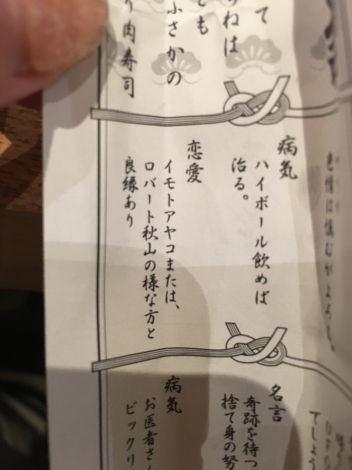 て
ねは
とも
ふさかの
り肉寿司
色情は慎むがよろし。
病気
ハイボール飲めば
治る。
恋愛
イモトアヤコまたは、
ロバート秋山の様な方と
良縁あり
てしよ
名言
奇跡を待つ
捨て身の努
病気
お医者さん
ビックリ